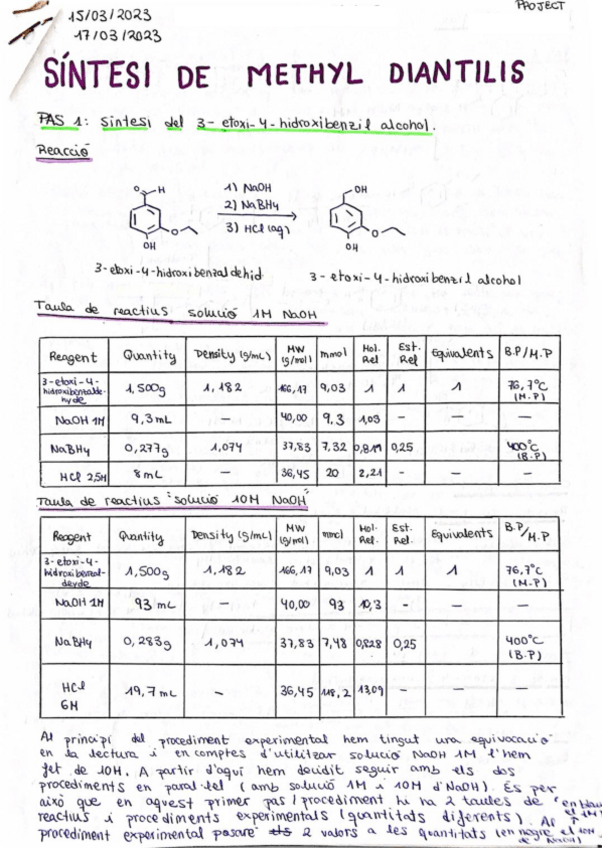 PROJECT
15/03/2023
17/03/2023
SÍNTESI DE METHYL DIANTILIS
PAS 1: Síntesi del 3-etoxi-4-hidroxibenzil alcohol.
Reacció
O H
OH
O
1) NaOH
2) NaBH4
3) HCl (aq)
OH
O
OH
3-etoxi-4-hidroxibenzaldehid
3-etoxi-4-hidroxibenzil alcohol
Taula de reactius solució 1M NaOH
Reagent Quantity Density (g/mL) MW (g/mol) mmol Mol. Rel Est. Rel Equivalents B.P/M.P
3-etoxi-4-hidroxibenzalde-hyde 1,500g 1,182 166,17 9,03 1 1 1 76,7°C (M.P)
NaOH 1M 9,3 mL — 40,00 9,3 1,03 - — —
NaBH4 0,277g 1,074 37,83 7,32 0,811 0,25 400°C (B.P)
HCl 2,5M 8 mL — 36,45 20 2,21 - — —
Taula de reactius "solució 10M NaOH"
Reagent Quantity Density (g/mL) MW (g/mol) mmol Mol. Rel. Est. Rel. Equivalents B.P/M.P
3-etoxi-4-hidroxibenzal-dehyde 1,500g 1,182 166,17 9,03 1 1 1 76,7°C (M.P)
NaOH 1M 93 mL — 40,00 93 10,3 - — —
NaBH4 0,283g 1,074 37,83 7,48 0,828 0,25 400°C (B.P)
HCl 6M 19,7 mL - 36,45 118,2 13,09 - — —
Al principi del procediment experimental hem tingut una equivocació
en la lectura i en comptes d'utilitzar solució NaOH 1M l'hem
fet de 10M. A partir d'aquí hem decidit seguir amb els dos
procediments en paral·lel (amb solució 1M i 10M d'NaOH). És per
això que en aquest primer pas / procediment hi ha 2 taules de
reactius i procediments experimentals (quantitats diferents). Al
procediment experimental posaré 2 valors a les quantitats (en negre el 10M
de NaOH)
en blau
el 1M